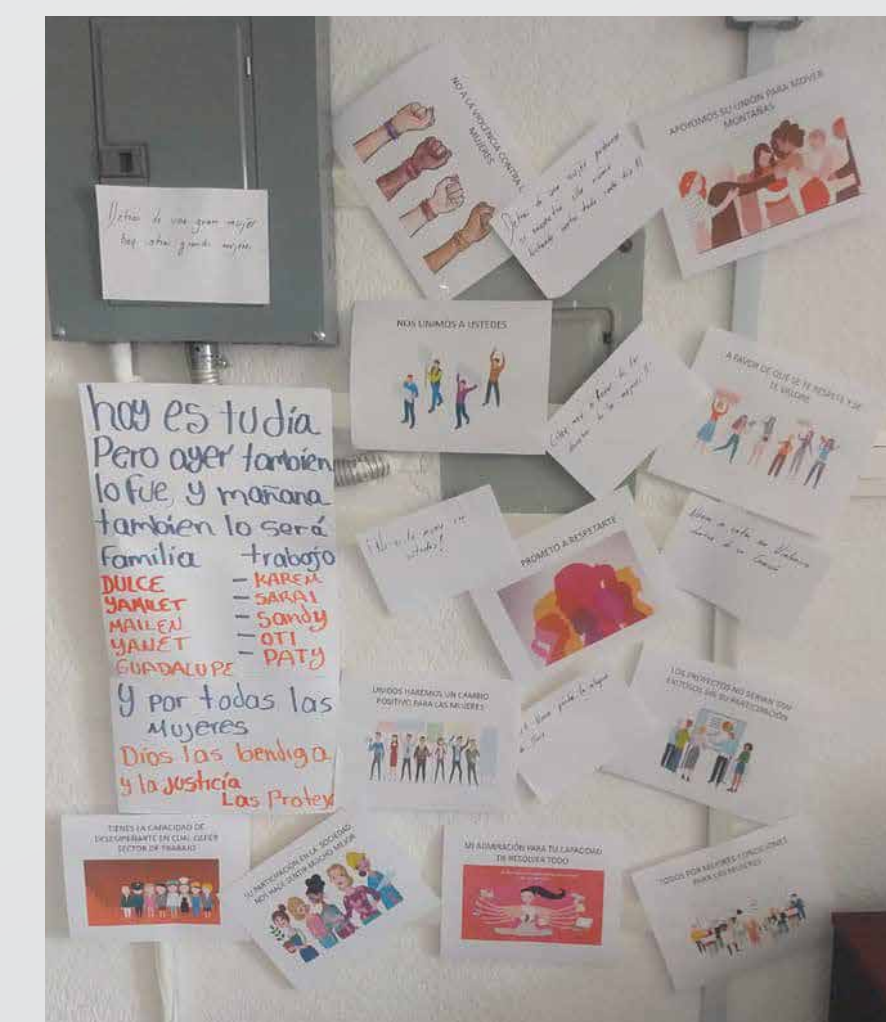 NO A LA VIOLENCIA CONTRA
MUJERES
APOYEMOS SU UNIÓN PARA MOVER
MONTAÑAS
Detras de una gran mujer
hay otras grandes mujeres
Detras de una mujer poderosa
se encuentra ella misma
luchando contra todo cada dia
NOS UNIMOS A USTEDES
A FAVOR DE QUE SE TE RESPETE Y SE
TE VALORE
hoy es tu día
Pero ayer tambien
lo fue, y mañana
tambien lo será
Familia trabajo
DULCE - KAREM
YAMILET - SARAI
MAILEN - Sandy
YANET - OTI
GUADALUPE - PATY
y por todas las
Mujeres
Dios las bendiga
y la justicia
Las Protej
PROMETO A RESPETARTE
UNIDOS HAREMOS UN CAMBIO
POSITIVO PARA LAS MUJERES
LOS PROYECTOS NO SERIAN TAN
EXITOSOS SIN SU PARTICIPACIÓN
TIENES LA CAPACIDAD DE
DESEMPEÑARTE EN CUALQUIER
SECTOR DE TRABAJO
SU PARTICIPACIÓN EN LA SOCIEDAD
NOS HACE SENTIR MUCHO MEJOR
MI ADMIRACIÓN PARA TU CAPACIDAD
DE RESOLVER TODO
TODOS POR MEJORES CONDICIONES
PARA LAS MUJERES